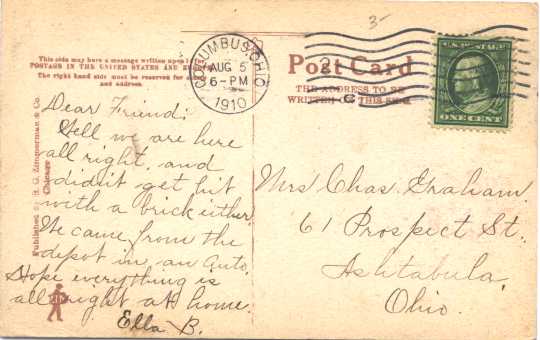 This side may have a message written upon it for
POSTAGE IN THE UNITED STATES AND
The right hand side must be reserved for
and address.
COLUMBUS, OHIO
AUG 5
6-PM
1910
3-
2
Post Card
THE ADDRESS TO BE
WRITTEN ON THIS SIDE
U.S. POSTAGE
ONE CENT
Published by H. G. Zimmerman & Co.
Chicago
Dear Friend:
Well we are here
all right, and
didn't get hit
with a brick either.
We came from the
depot in an auto.
Hope everything is
all right at home.
Ella B.
Mrs Chas. Graham.
61 Prospect St.,
Ashtabula,
Ohio.